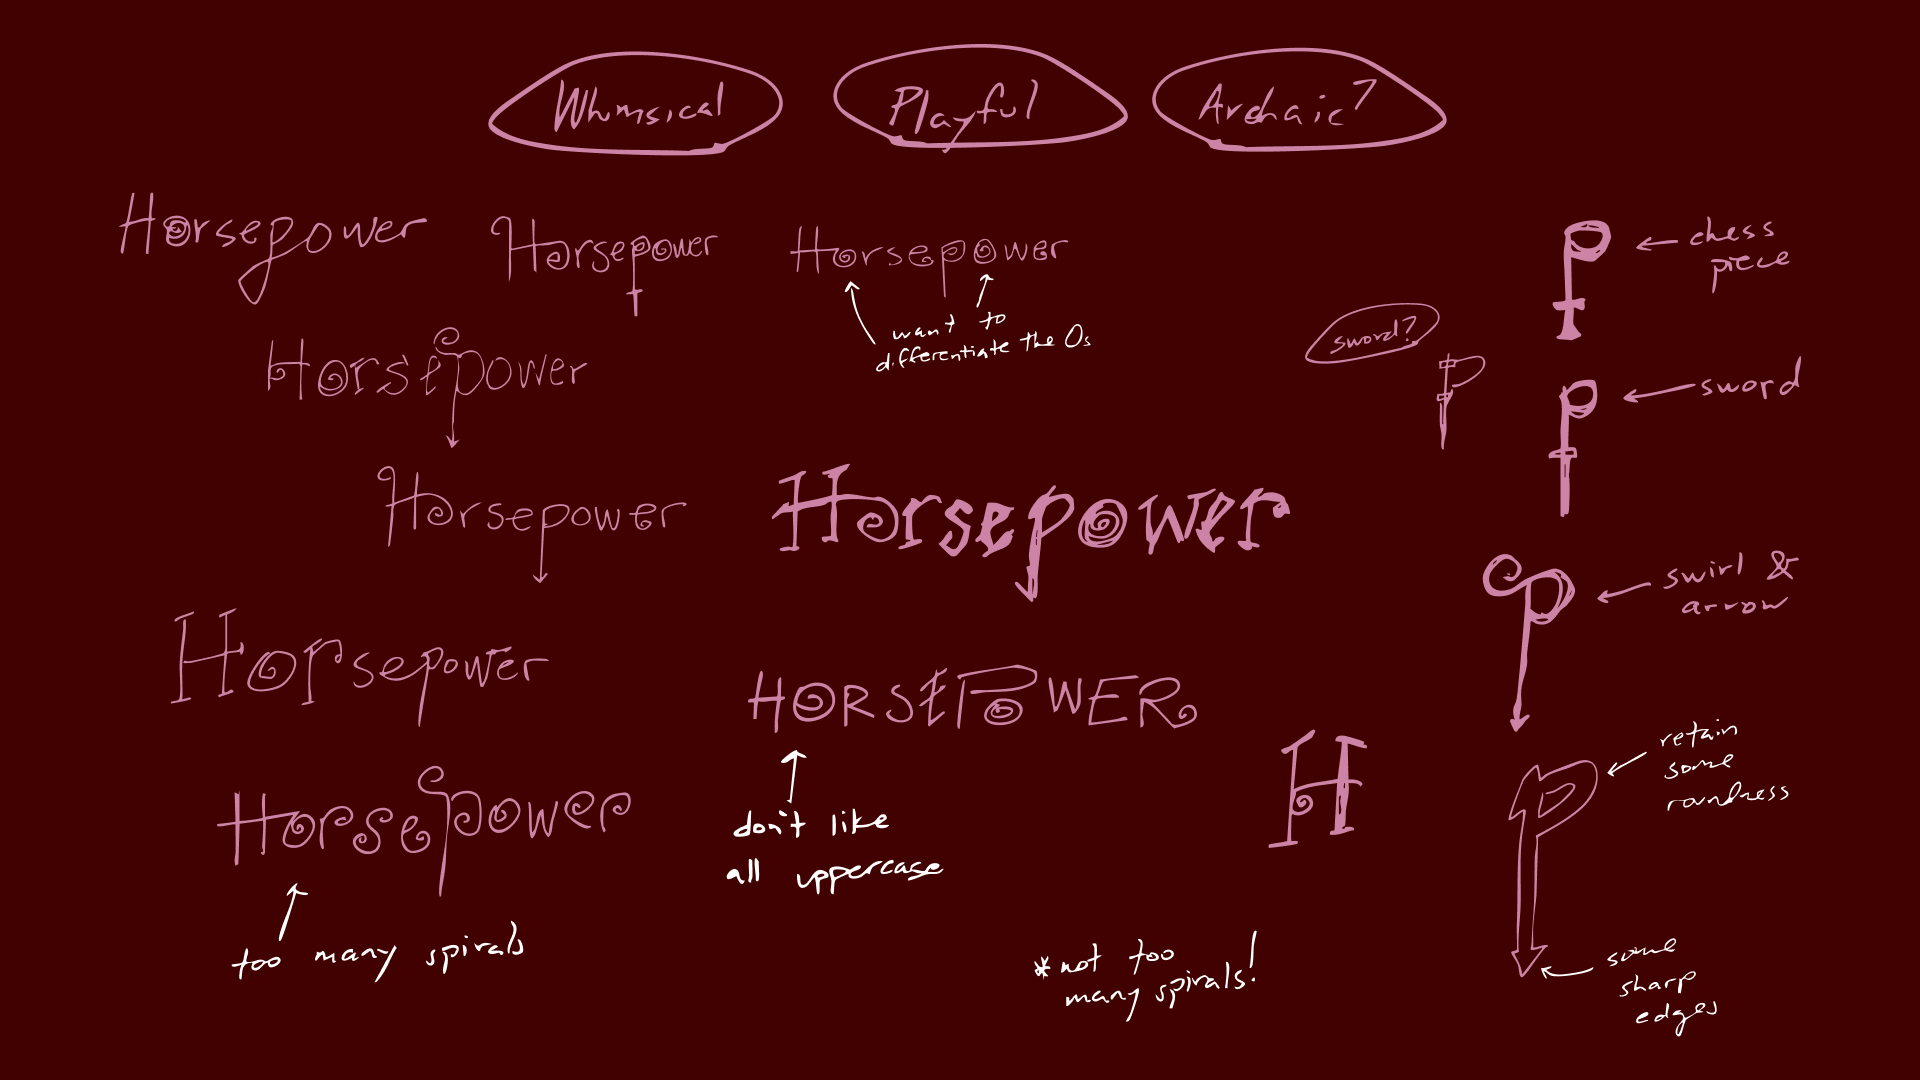 Whimsical
Playful
Archaic?
Horsepower
Horsepower
Horsepower
want to
differentiate the Os
chess
piece
Horsepower
sword?
P
sword
Horsepower
Horsepower
swirl &
arrow
Horsepower
HORSEPOWER
don't like
all uppercase
H
retain
some
roundness
Horsepower
too many spirals
*not too
many spirals!
some
sharp
edges
p
p
p
p